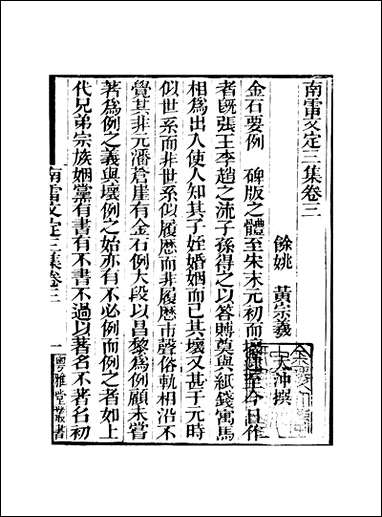 南雷文定三集卷三
餘姚 黃宗羲 太沖撰
金石要例 碑版之體至宋末元初而壞逮至今日作
者既張王李趙之流子孫得之以答賻奠與紙錢寓馬
相為出入使人知其子姓婚姻而已其壞又甚于元時
似世系而非世系似履歷而非履歷市聲俗軌相沿不
覺其非元潘蒼崖有金石例大段以昌黎為例顧未嘗
著為例之義與壞例之始亦有不必例而例之者如上
代兄弟宗族姻黨有書有不書不過以著名不著名初
南雷文定三集卷三
一
粵雅堂叢書